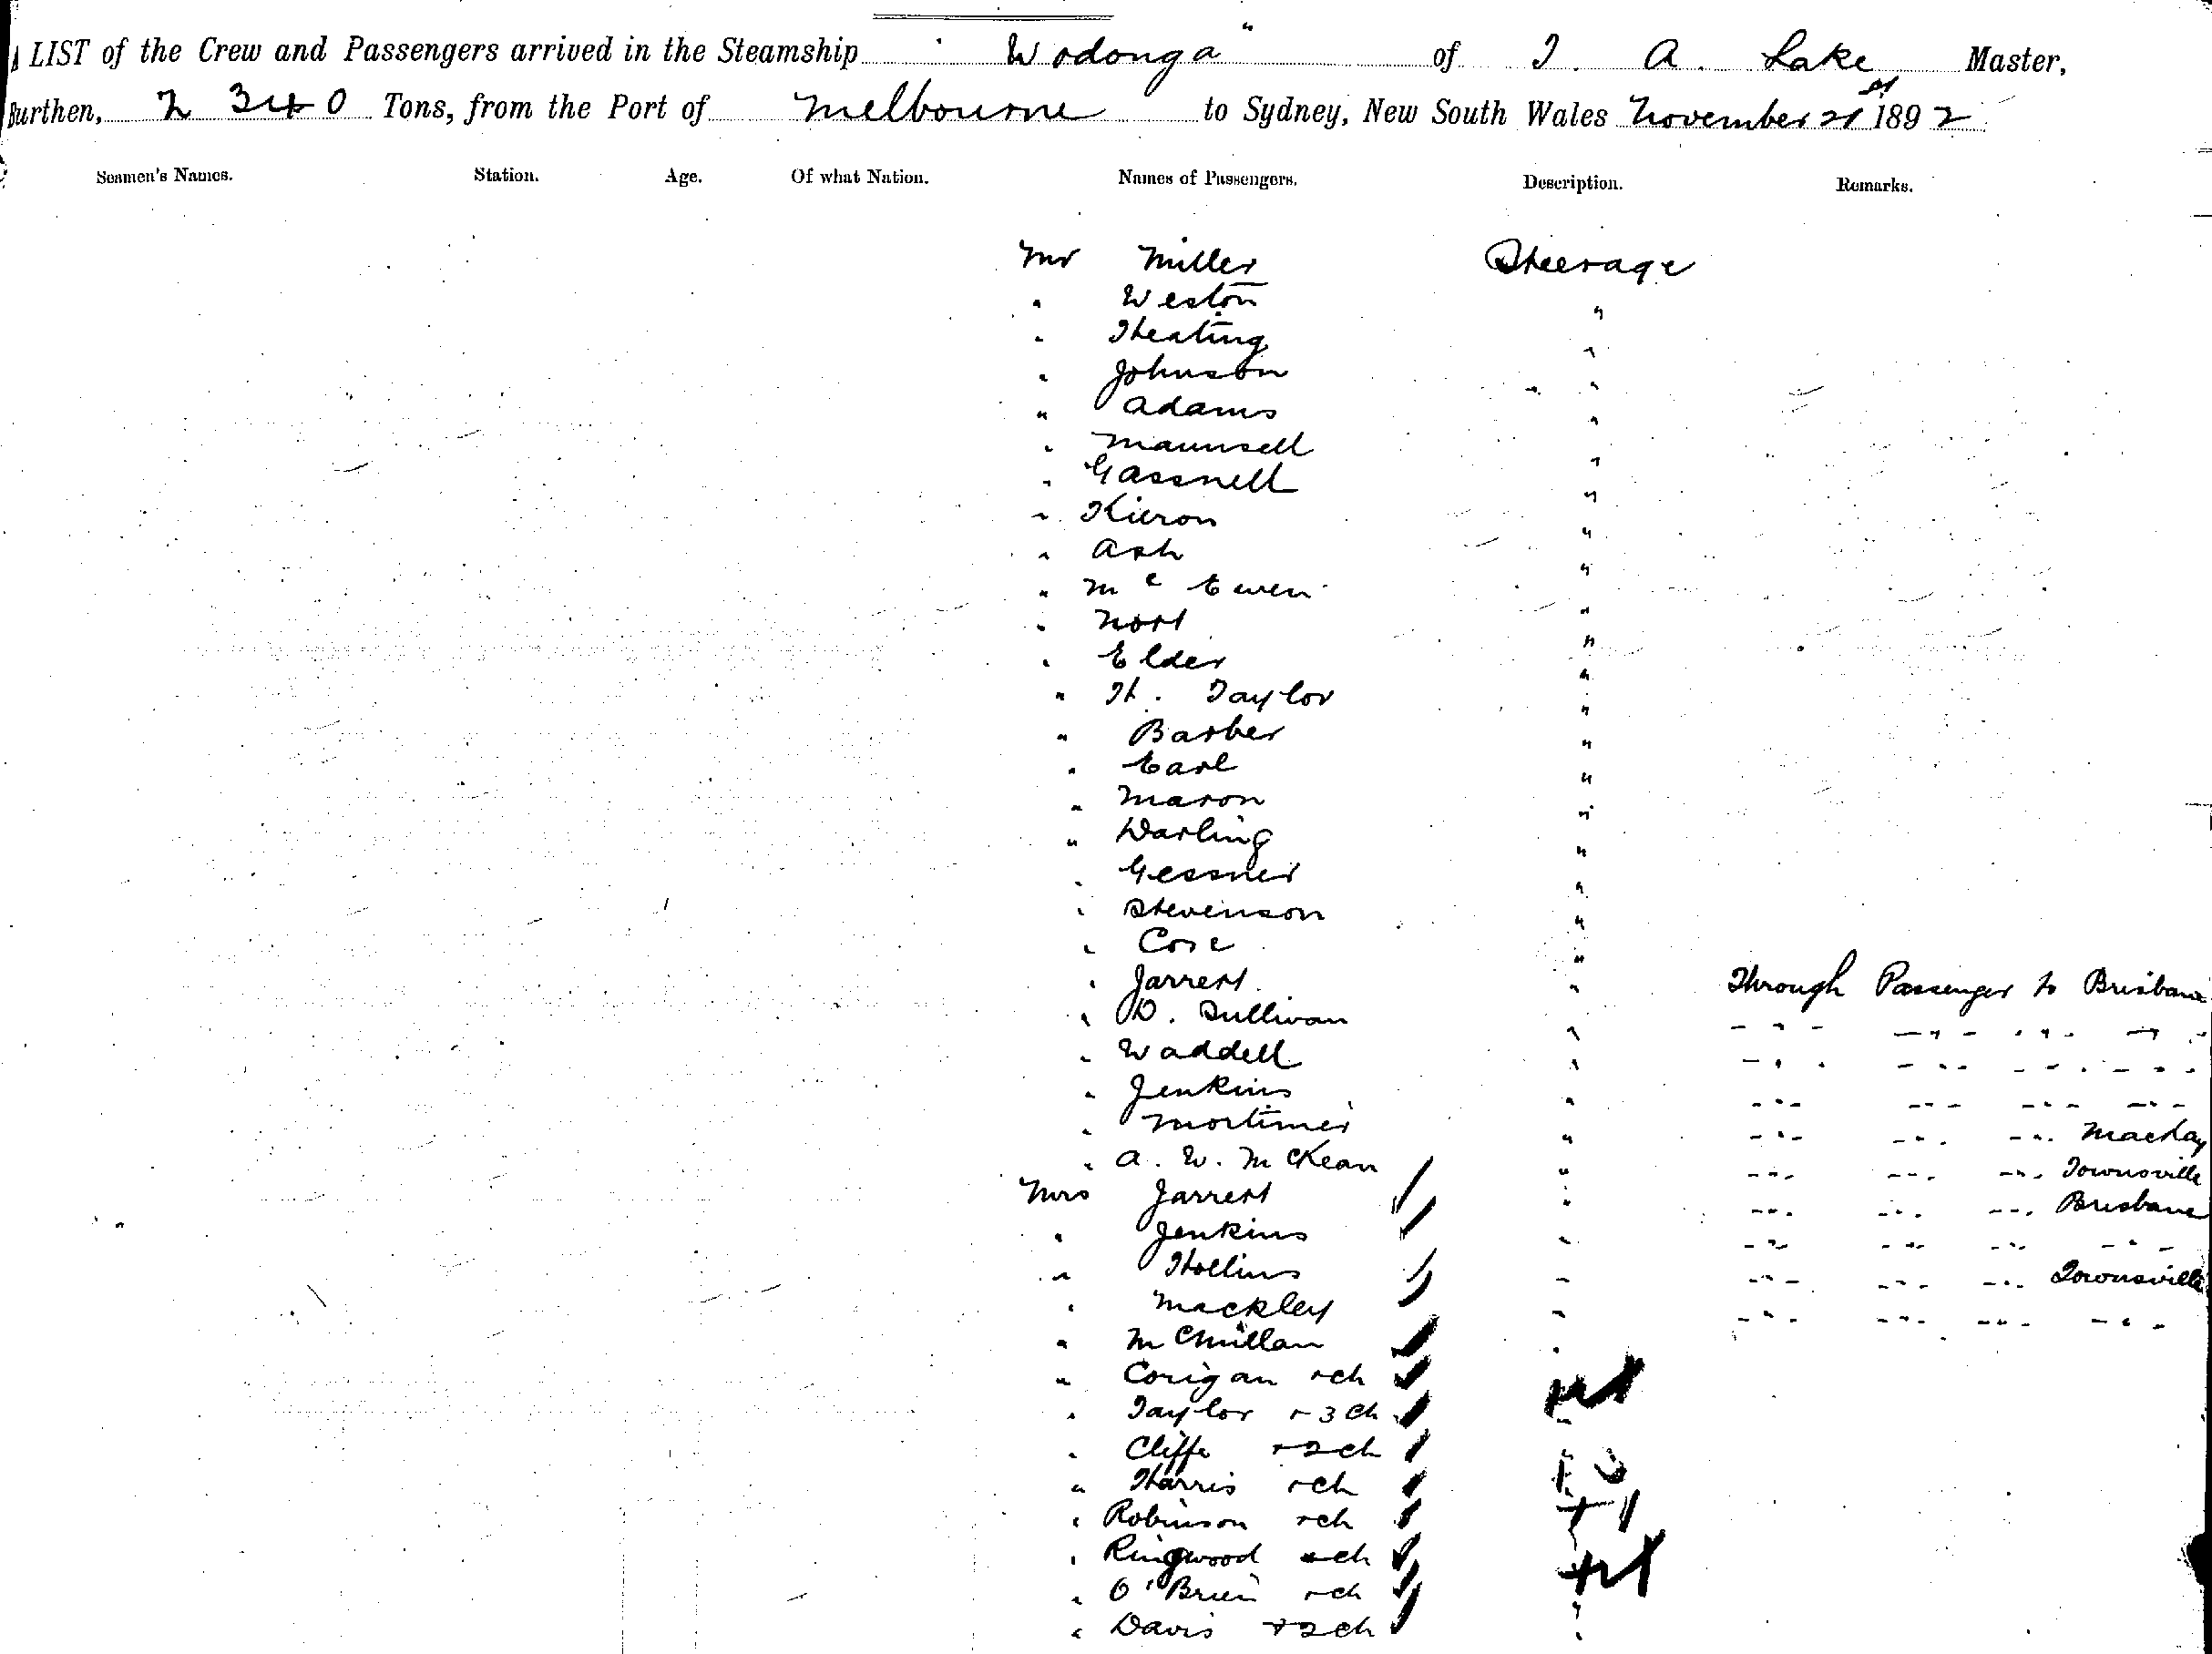 LIST of the Crew and Passengers arrived in the Steamship "Wodonga" of T. A. Lake Master,
Burthen, 2340 Tons, from the Port of Melbourne to Sydney, New South Wales November 21st 1892
Seamen's Names. Station. Age. Of what Nation. Names of Passengers. Description. Remarks.
Mr Miller Steerage
" Weston "
" Keating "
" Johnson "
" Adams "
" Maunsell "
" Gassnell "
" Kieron "
" Ash "
" McEwen "
" Nort "
" Elder "
" H. Taylor "
" Barber "
" Earl "
" Mason "
" Darling "
" Gessner "
" Stevenson "
" "
" Jarrett " Through Passenger to Brisbane
" D. Sullivan " " " " "
" Waddell " " " " "
" Jenkins " " " " "
" Mortimer " " " " Mackay
" A. W. McKean " " " " Townsville
Mrs Jarrett " " " " Brisbane
" Jenkins " " " " "
" Hollins " " " " Townsville
" Mackley " " " " "
" McMillan "
" Corigan + ch
" Taylor + 3 ch "
" Cliffe + 2 ch
" Harris + ch
" Robinson + ch
" Ringwood + ch
" O'Brien + ch "
" Davis + 2 ch "